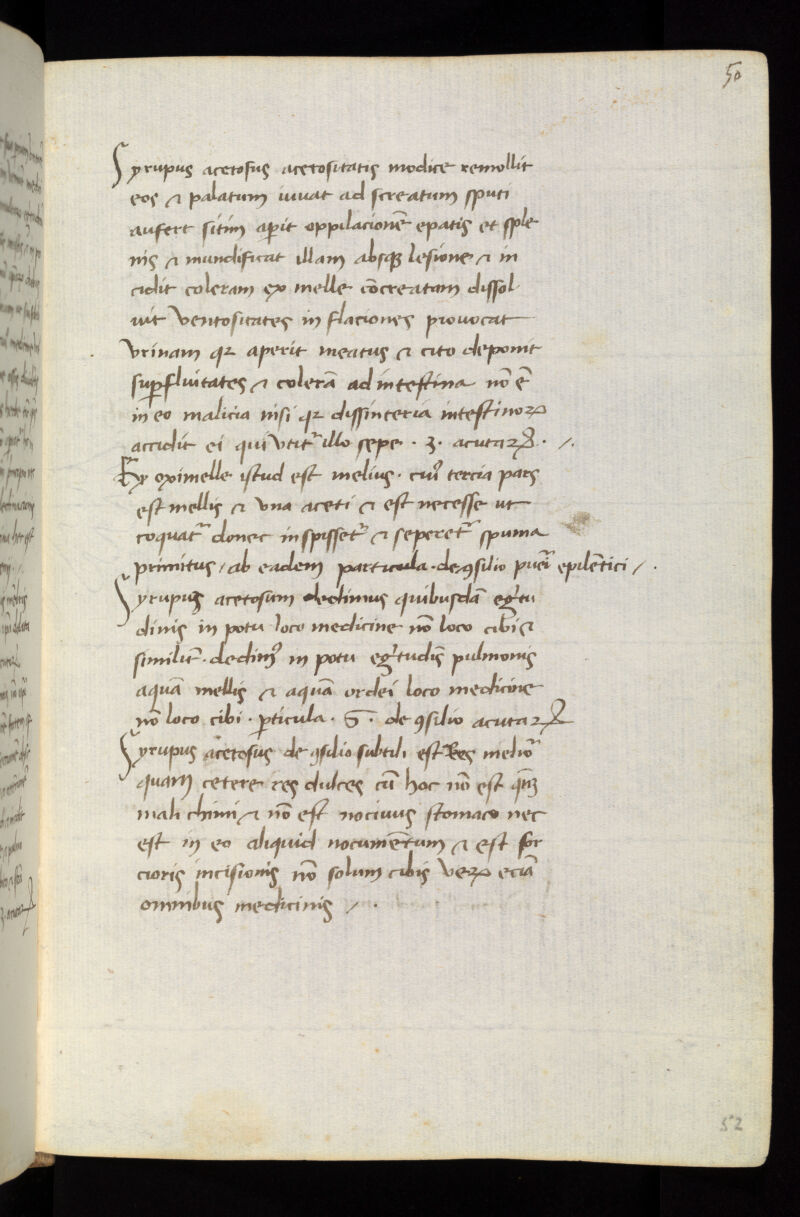 50
Syrupus acetosus acetositatis modice remollit
eos & palatum iuuat ad screatum sputi
aufert sitim aꝑit oppilacionē epatis et sple
nis & mundificat illam absqꝫ lesione & in
cidit coleram ex melle cōcreatam dissol
uit ventositates inflaciones prouocat
vrinam qꝛ aperit meatus & cito deponit
suꝑfluitates & colerā ad intestina nō ē
in eo malicia nisi qꝛ dissinteria intestinoꝝ
accidit ei qui vtit᷑ illo sepe · 3 · acutaꝝ · /.
Ex oximelle istud est melius · cui᷑ tercia pars
est mellis & vna aceti & est necesse ut
coquat᷑ donec inspisset᷑ & seperet᷑ spuma
primitus / ab eadem particula · de ꝯsilio pueri epilentici / .
Syrupum acetosum dedimus quibusdā egritu
dinis in potu loco medicine nō loco cibi &
similit᷑ · dedim᷒ in potu egritudīs pulmonis
aquā mellis & aquā ordei loco medicine
nō loco cibi · ꝑticula · G · de ꝯsilio acutaꝝ
Syrupus acetosus de ꝯsilio subtili est Res melior᷑
quam cetere res dulces cū hoc nō est
mali chimi & nō est nociuus stomaco nec
est in eo aliquid nocumēntum & est for
cioris incisionis nō solum cibis veꝝ eciā
omnibus medicinis / .
52